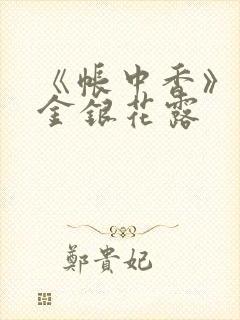 《帳中香》
金銀花露
鄭貴妃